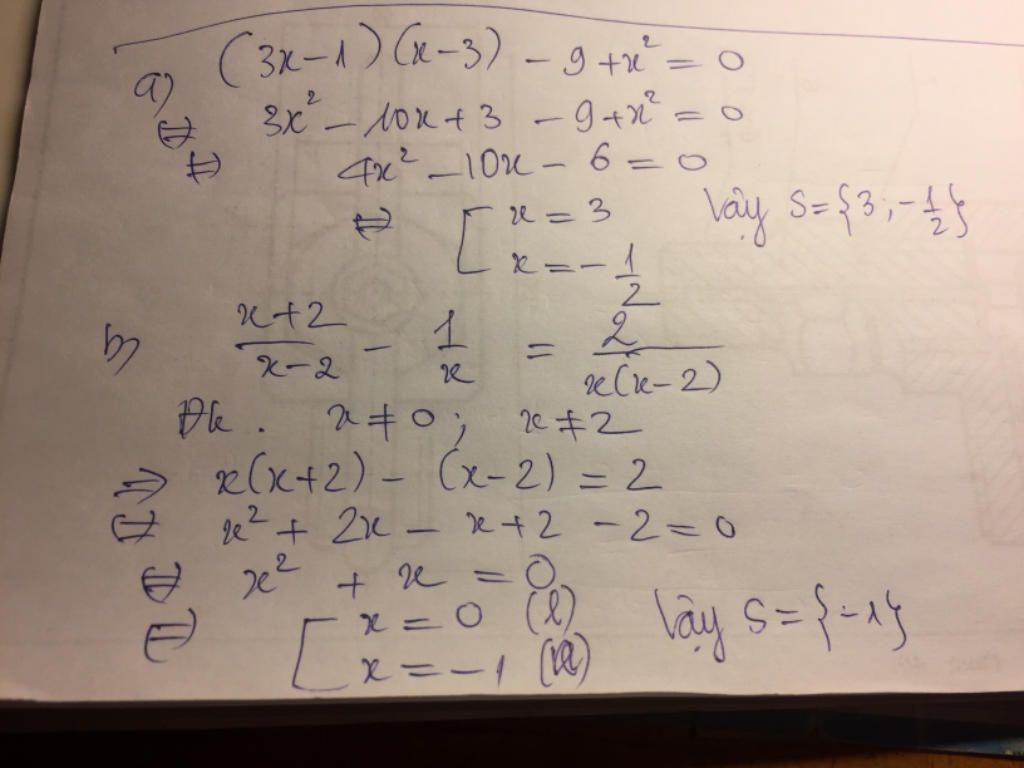 a) (3x-1)(x-3) - 9 + x² = 0
⇔ 3x² - 10x + 3 - 9 + x² = 0
⇔ 4x² - 10x - 6 = 0
⇔ [ x = 3 Vậy S = {3; -1/2}
x = -1/2
b) (x+2)/(x-2) - 1/x = 2/(x(x-2))
Đk. x ≠ 0; x ≠ 2
⇒ x(x+2) - (x-2) = 2
⇔ x² + 2x - x + 2 - 2 = 0
⇔ x² + x = 0
⇔ [ x = 0 (l) Vậy S = {-1}
x = -1